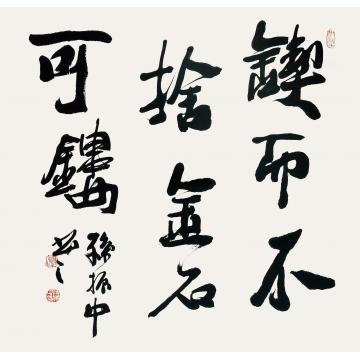 鍥而不
捨金石
可鏤
孫振中
書之